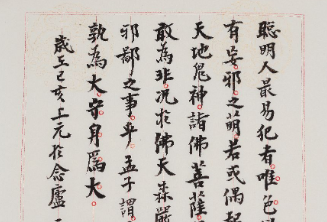 聰明人最易犯者唯色
有妄邪之萌若或偶起
天地鬼神諸佛菩薩
敢為非況於佛天森嚴
邪鄙之事乎孟子謂
孰為大守身為大
歲在己亥上元於念廬